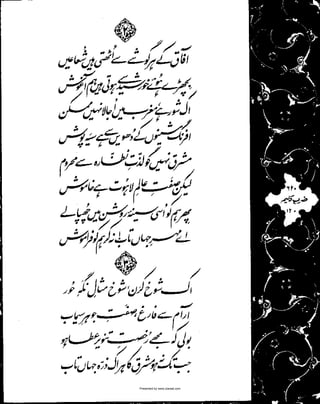 آفاق کے ہر گوشے سے اٹھتی ہیں شعاعیں
بچھڑے ہوئے خورشید سے ہوتی ہیں ہم آغوش
اک شور ہے، مغرب میں اجالا نہیں ممکن
افرنگ مشینوں کے دھویں سے ہے سیہ پوش
مشرق نہیں گو لذتِ نظارہ سے محروم
لیکن صفتِ عالمِ لاہوت ہے خاموش
پھر ہم کو اسی سینۂ روشن میں چھپا لے
اے مہرِ جہاں تاب! نہ کر ہم کو فراموش
اک شوخ کرن، شوخ مثالِ نگہِ حور
آرام سے فارغ، صفتِ جوہرِ سیماب
بولی کہ مجھے رخصتِ تنویر عطا ہو
جب تک نہ ہو مشرق کا ہر اک ذرہ جہاں تاب
۶۲۰
ضربِ کلیم
۱۲۰
Presented by www.ziaraat.com